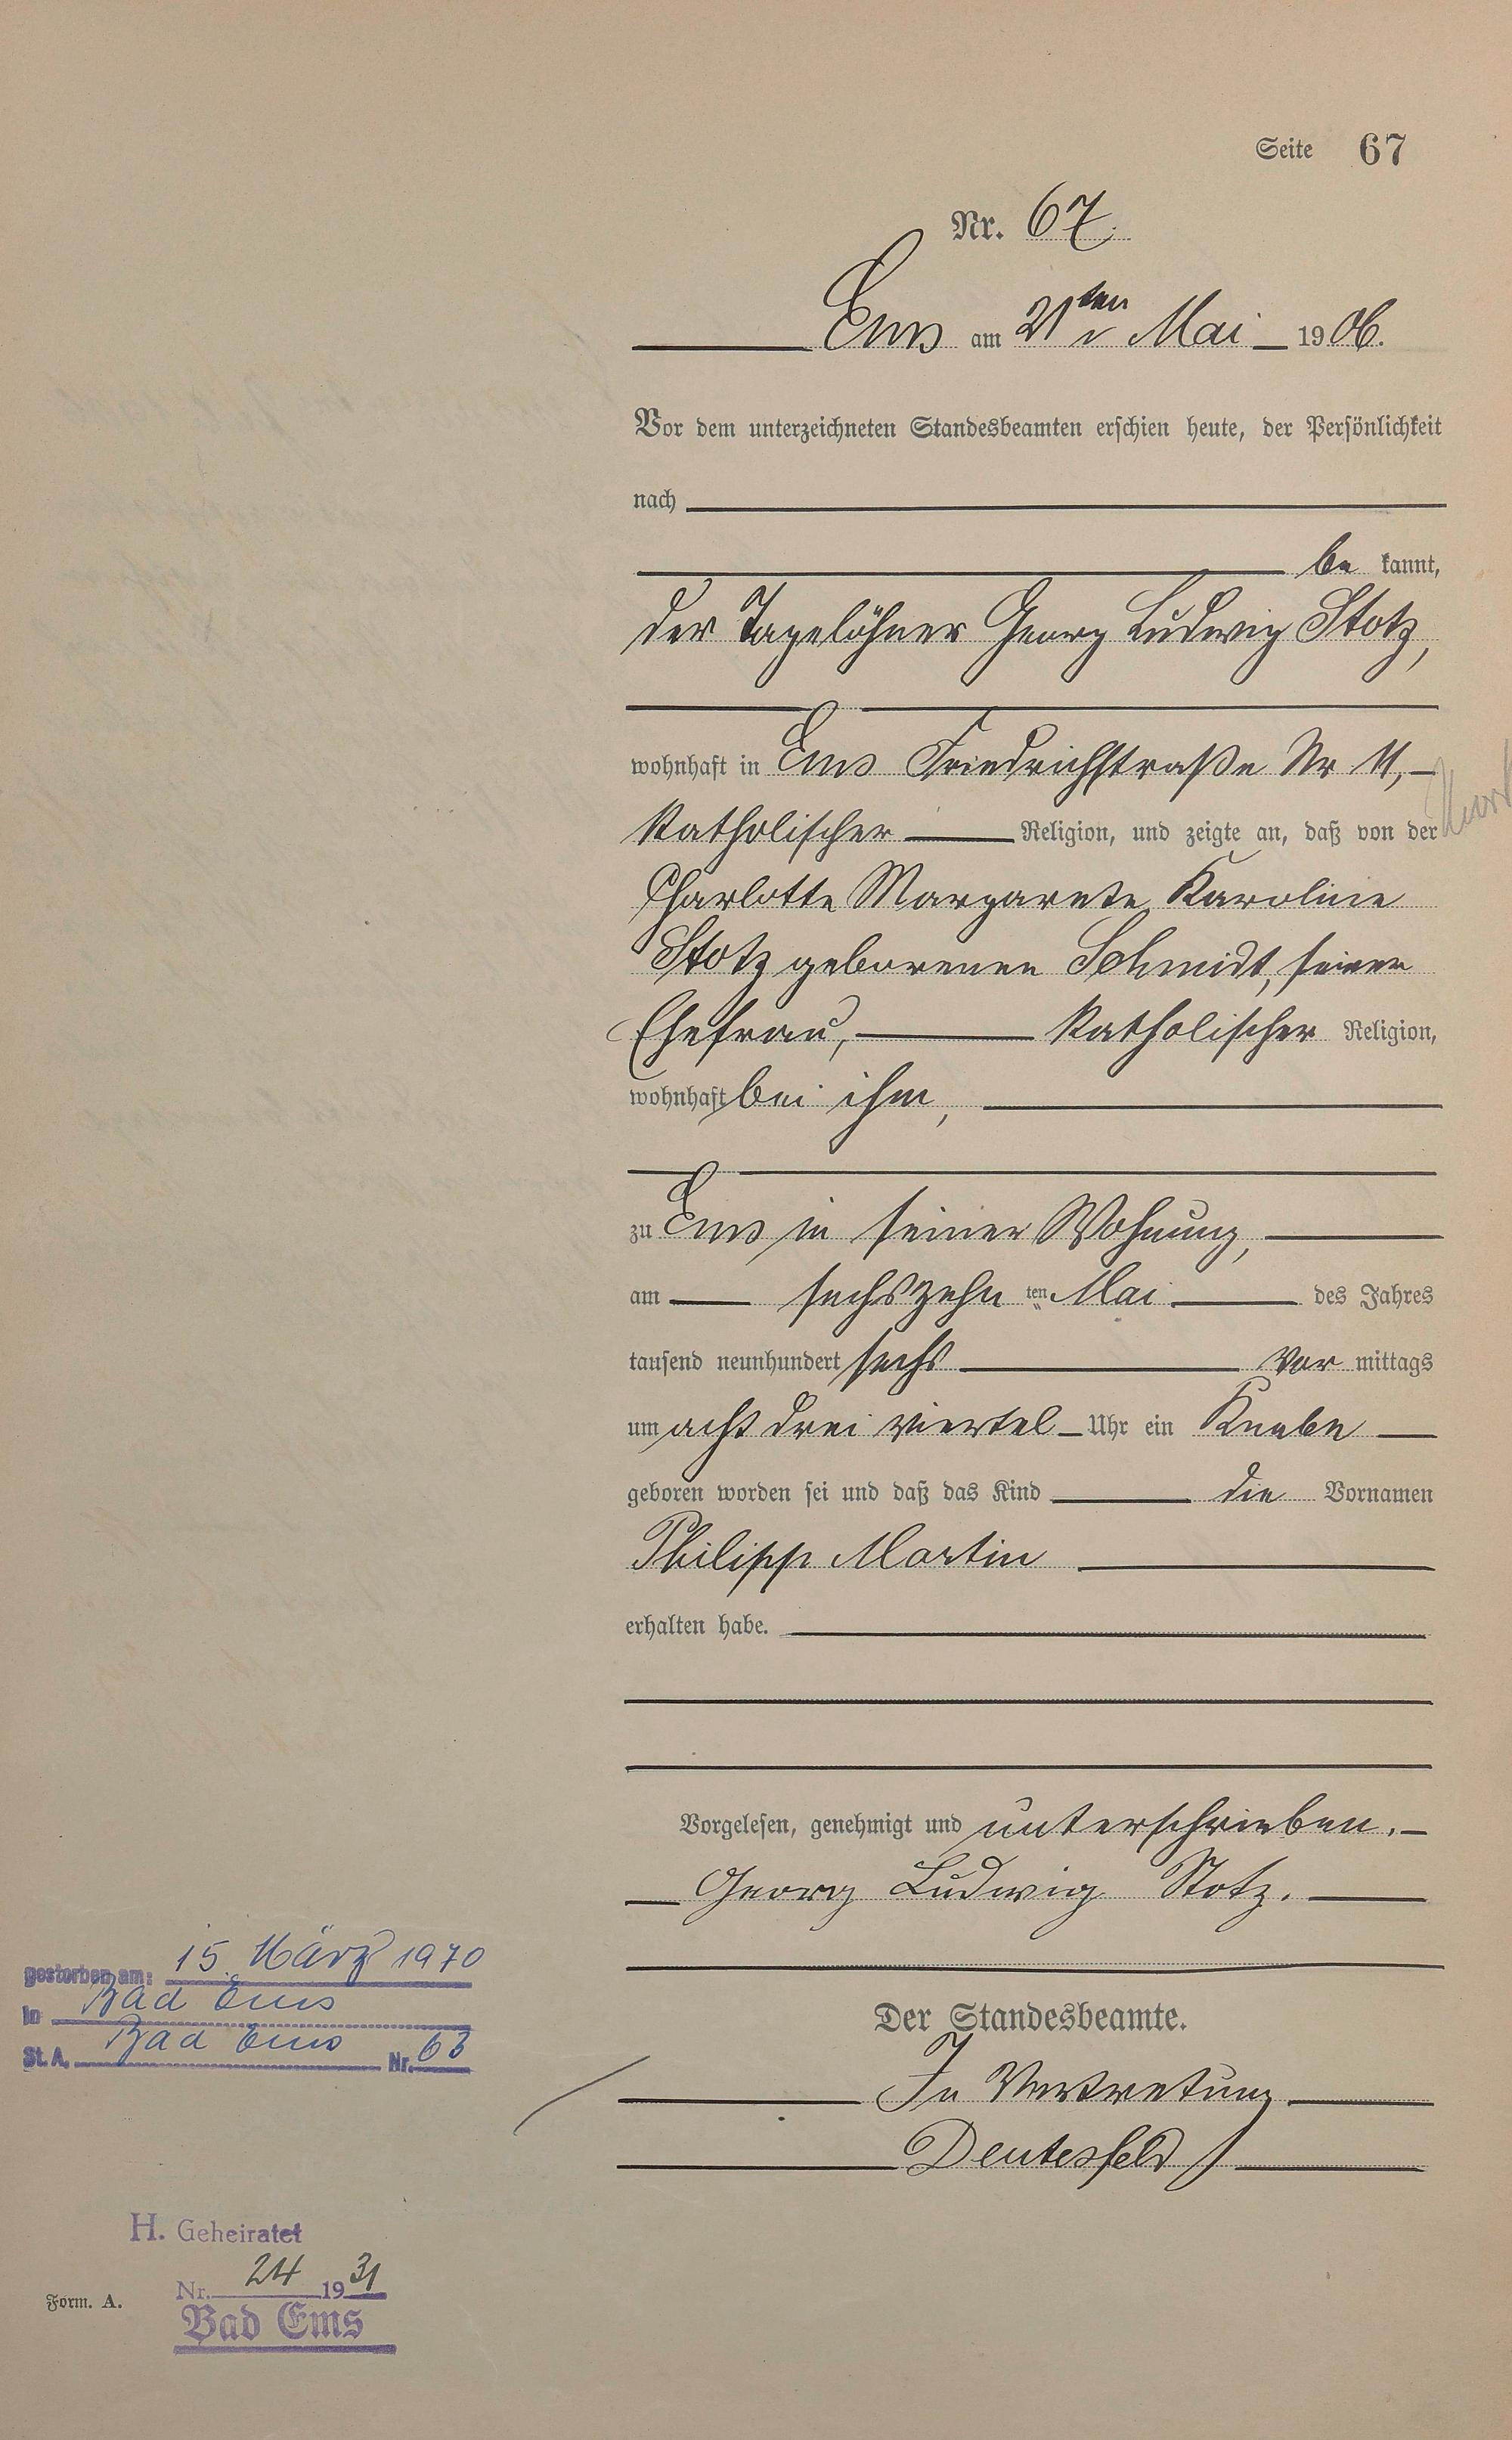 Seite 67
Nr. 67.
Ems am 21ten Mai 1906.
Vor dem unterzeichneten Standesbeamten erschien heute, der Persönlichkeit
nach
be kannt,
der Tagelöhner Georg Ludwig Stotz,
wohnhaft in Ems Friedrichstraße Nr 11,
katholischer Religion, und zeigte an, daß von der
Charlotte Margarete Karoline
Stotz geborenen Schmidt, seiner
Ehefrau, katholischer Religion,
wohnhaft bei ihm,
zu Ems in seiner Wohnung,
am sechszehn ten Mai des Jahres
tausend neunhundert sechs Vor mittags
um acht drei viertel Uhr ein Knabe
geboren worden sei und daß das Kind die Vornamen
Philipp Martin
erhalten habe.
Vorgelesen, genehmigt und unterschrieben.
Georg Ludwig Stotz.
Der Standesbeamte.
In Vertretung
Deutesfeld
gestorben am: 15. März 1970
in Bad Ems
St. A. Bad Ems Nr. 63
H. Geheiratet
Nr. 24 1931
Bad Ems
Form. A.